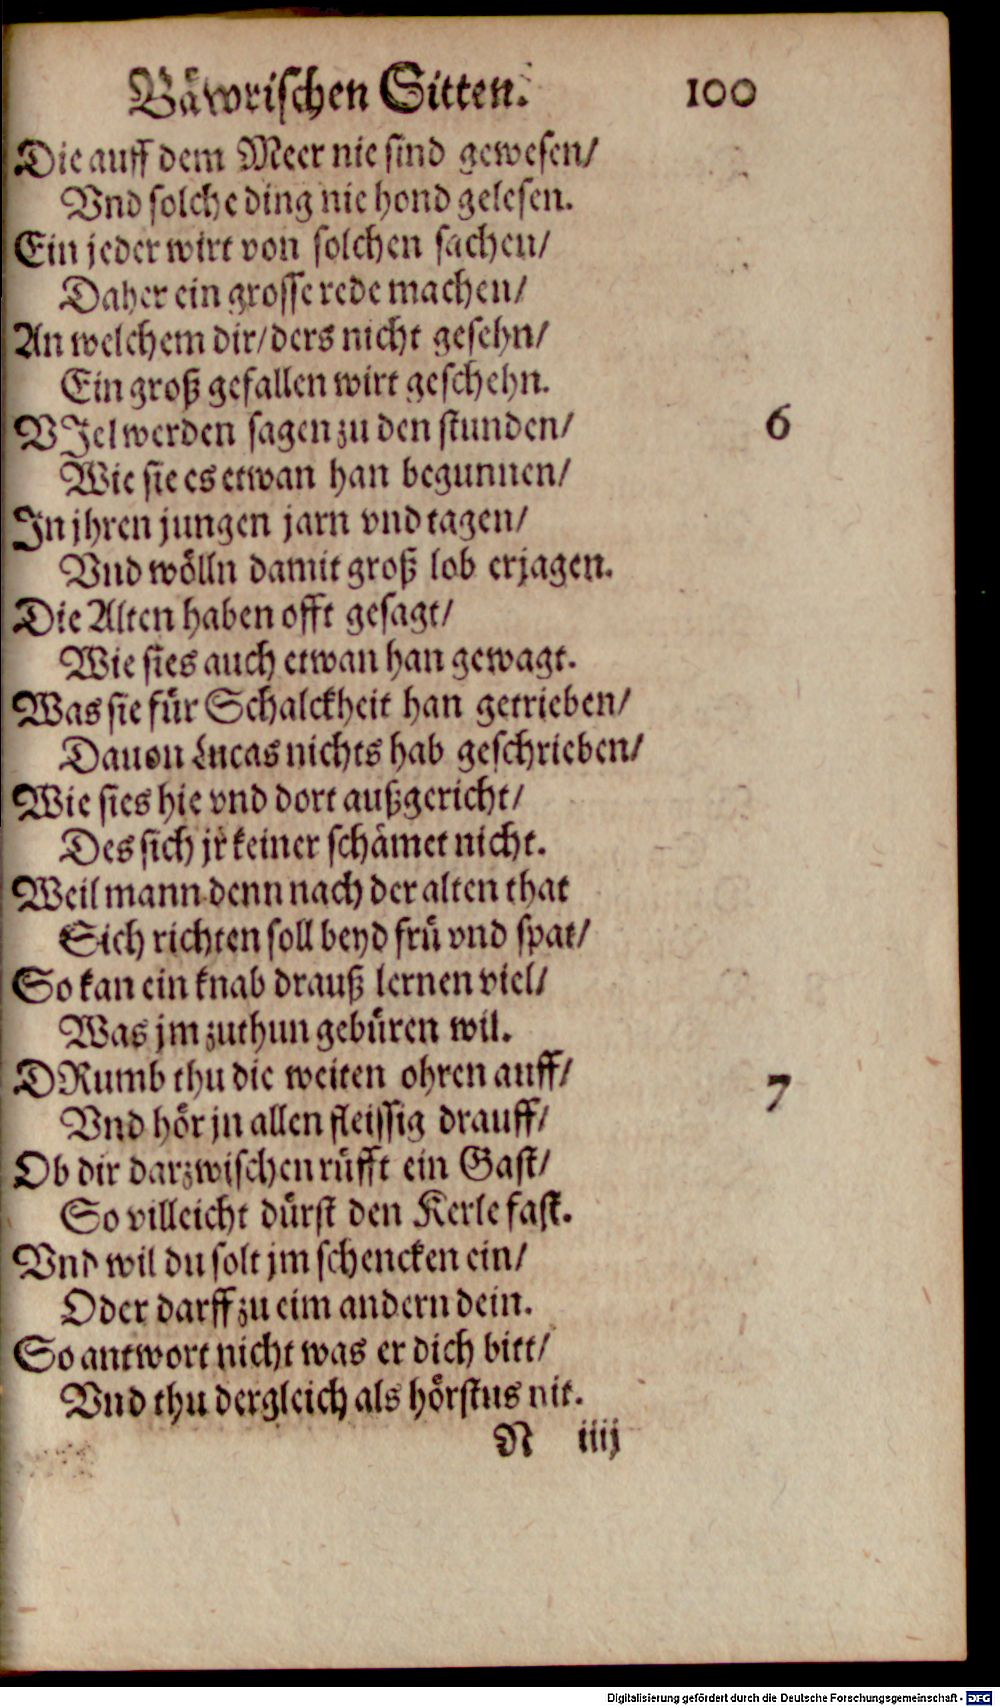 Bäwrischen Sitten. 100
Die auff dem Meer nie sind gewesen/
Vnd solche ding nie hond gelesen.
Ein jeder wirt von solchen sachen/
Daher ein grosse rede machen/
An welchem dir/ders nicht gesehn/
Ein groß gefallen wirt geschehn.
VJel werden sagen zu den stunden/ 6
Wie sie es etwan han begunnen/
In jhren jungen jarn vnd tagen/
Vnd wölln damit groß lob erjagen.
Die Alten haben offt gesagt/
Wie sies auch etwan han gewagt.
Was sie für Schalckheit han getrieben/
Dauon Lucas nichts hab geschrieben/
Wie sies hie vnd dort außgericht/
Des sich jr keiner schämet nicht.
Weil mann denn nach der alten that
Sich richten soll beyd frü vnd spat/
So kan ein knab drauß lernen viel/
Was jm zuthun gebüren wil.
DRumb thu die weiten ohren auff/ 7
Vnd hör jn allen fleissig drauff/
Ob dir darzwischen rüfft ein Gast/
So villeicht dürst den Kerle fast.
Vnd wil du solt jm schencken ein/
Oder darff zu eim andern dein.
So antwort nicht was er dich bitt/
Vnd thu dergleich als hörstus nit.
N iiij
Digitalisierung gefördert durch die Deutsche Forschungsgemeinschaft - DFG